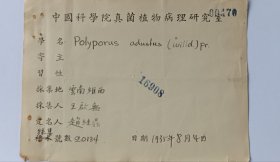 中國科學院真菌植物病理研究室
00470
學名 Polyporus adustus (Willd) Fr.
寄主
習性
16908
採集地 雲南維西
採集人 王啟無
定名人
採集
標本號數 20134 日期 1935年8月4日